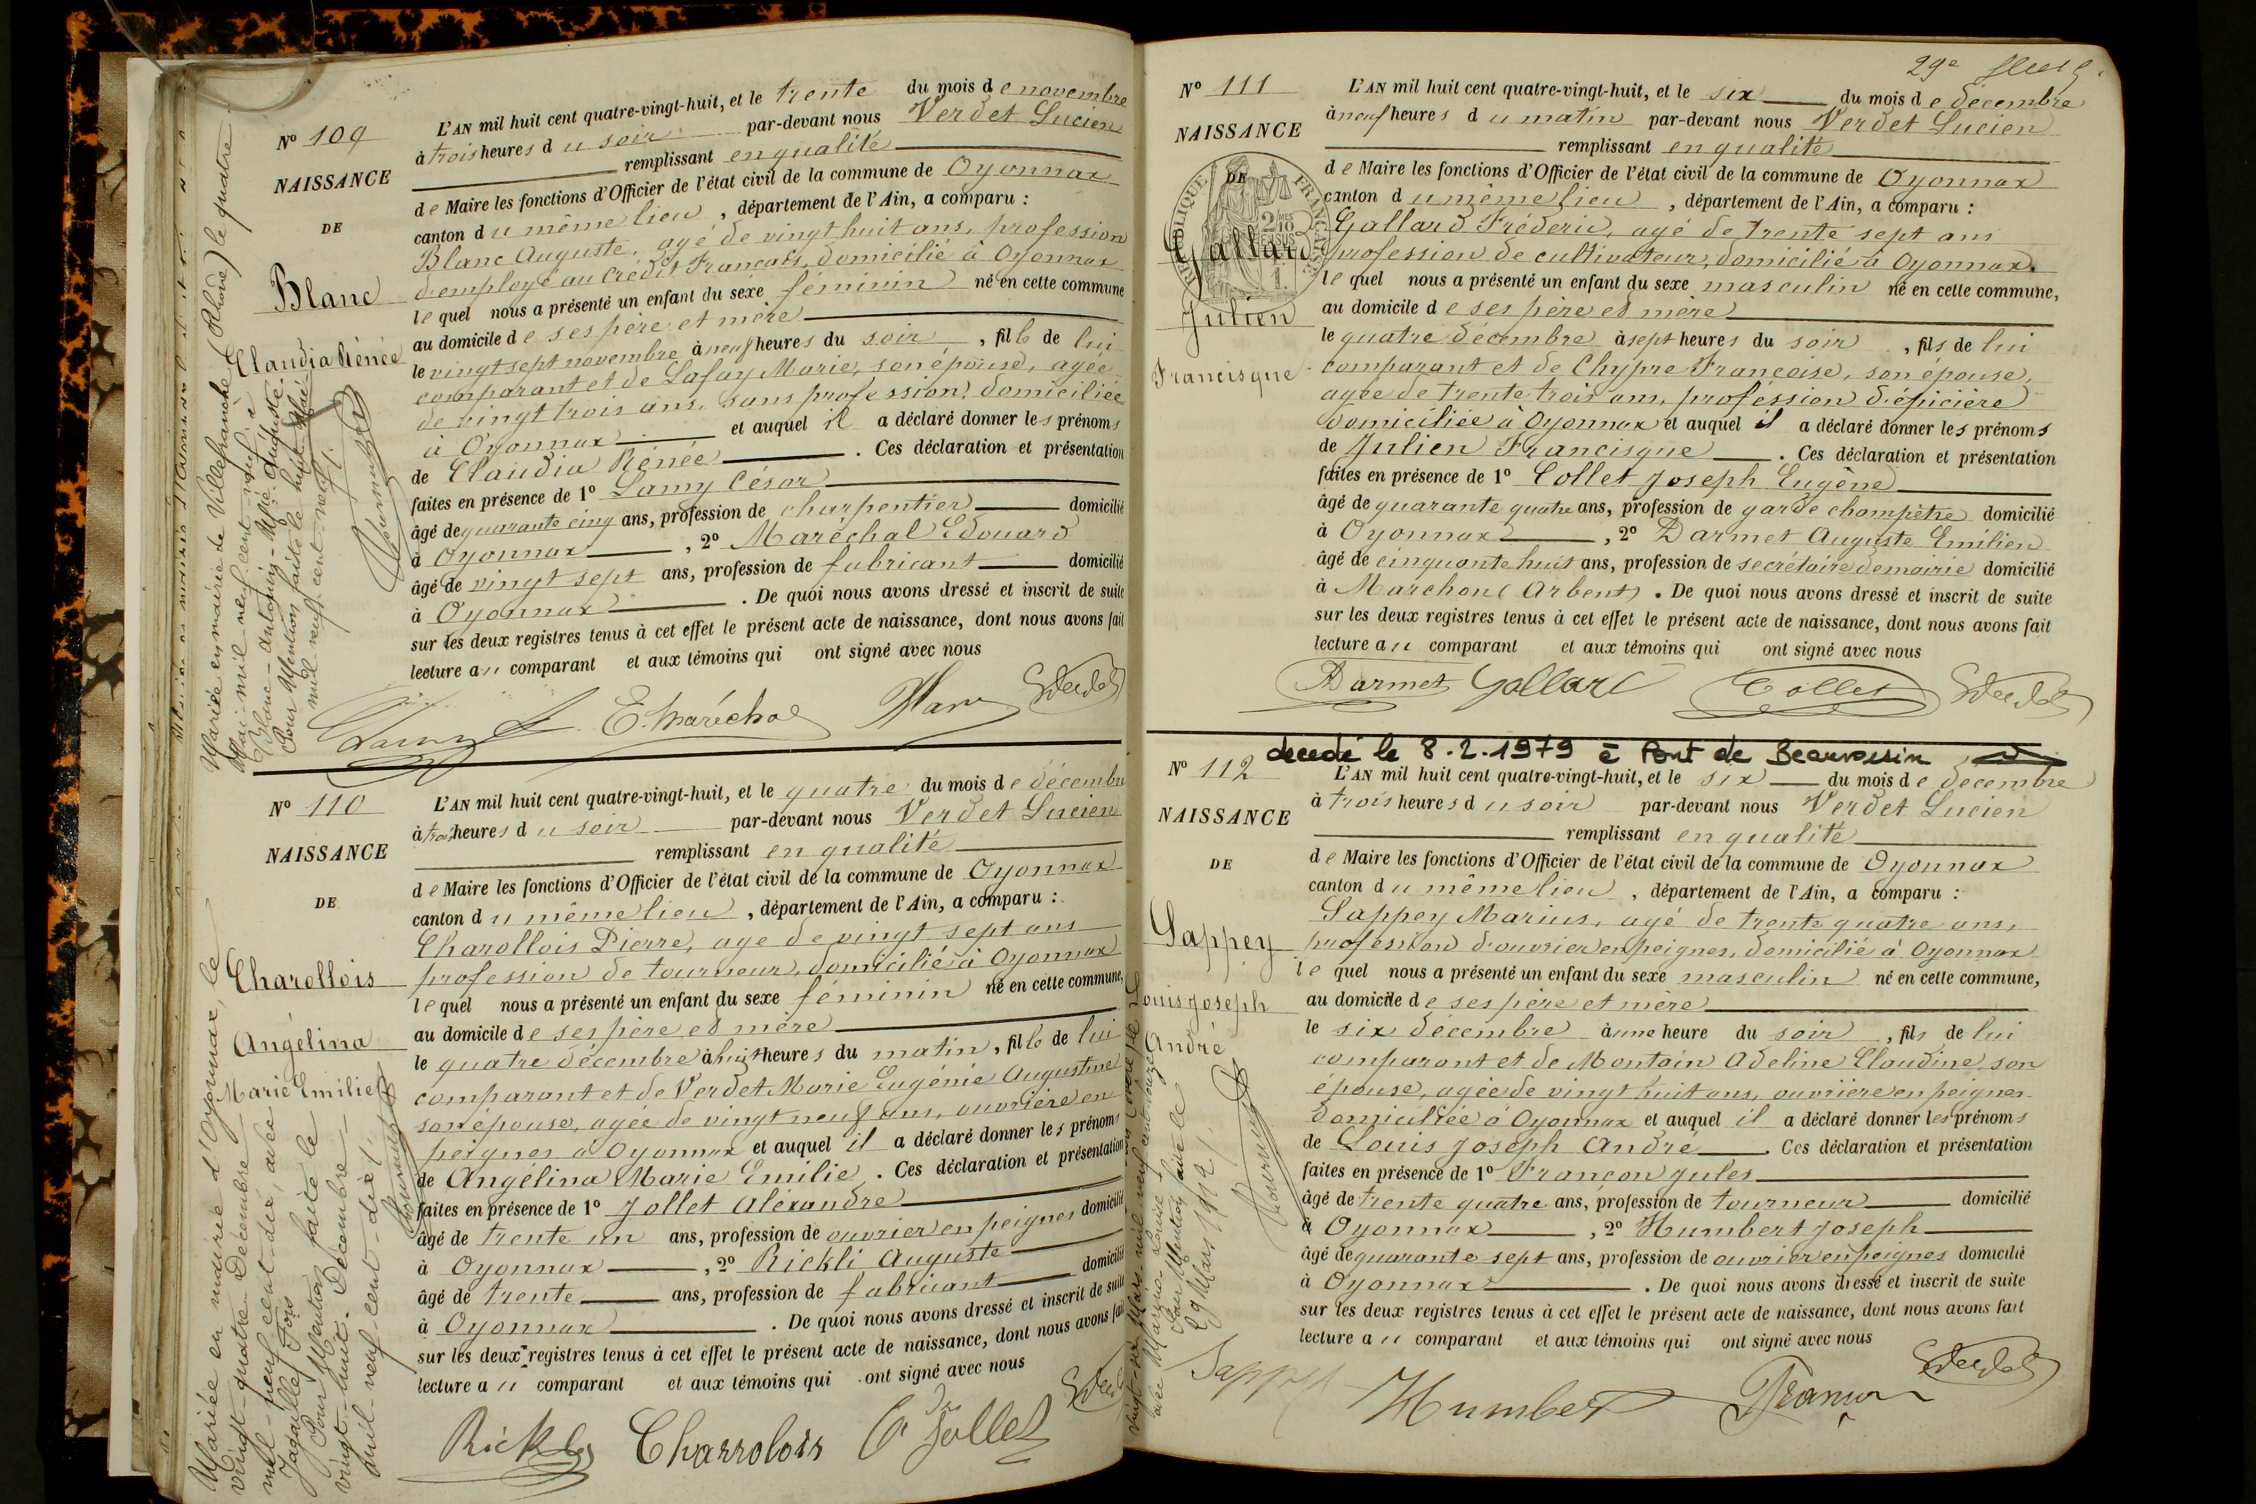 N° 109
NAISSANCE
DE
Blanc
Claudia Rénée
L'AN mil huit cent quatre-vingt-huit, et le trente du mois de novembre
à trois heures du soir par-devant nous Verdet Lucien
remplissant en qualité
de Maire les fonctions d'Officier de l'état civil de la commune de Oyonnax
canton du même lieu, département de l'Ain, a comparu :
Blanc Auguste, agé de vingt huit ans, profession
d'employé au Crédit Francais, domicilié à Oyonnax
lequel nous a présenté un enfant du sexe féminin né en cette commune
au domicile de ses père et mère
le vingt sept novembre à neuf heures du soir, fille de lui
comparant et de Lafay Marie, son épouse, agée
de vingt trois ans, sans profession, domiciliée
à Oyonnax et auquel il a déclaré donner les prénoms
de Claudia Rénée. Ces déclaration et présentation
faites en présence de 1° Lamy César
âgé de quarante cinq ans, profession de charpentier domicilié
à Oyonnax, 2° Maréchal Edouard
âgé de vingt sept ans, profession de fabricant domicilié
à Oyonnax. De quoi nous avons dressé et inscrit de suite
sur les deux registres tenus à cet effet le présent acte de naissance, dont nous avons fait
lecture au comparant et aux témoins qui ont signé avec nous
Lamy E. Maréchal Blanc Verdet
Mariée en mairie de Villefranche (Rhône) le quatre
Mai mil neuf cent neuf
Pour Mention faite le huit Mai
mil neuf cent neuf.
N° 110
NAISSANCE
DE
Charollois
Angélina
Marie Emilie
L'AN mil huit cent quatre-vingt-huit, et le quatre du mois de décembre
à trois heures du soir par-devant nous Verdet Lucien
remplissant en qualité
de Maire les fonctions d'Officier de l'état civil de la commune de Oyonnax
canton du même lieu, département de l'Ain, a comparu :
Charollois Pierre, age de vingt sept ans
profession de tourneur, domicilié à Oyonnax
lequel nous a présenté un enfant du sexe féminin né en cette commune,
au domicile de ses père et mère
le quatre décembre à huit heures du matin, fille de lui
comparant et de Verdet Marie Eugénie Augustine
son épouse, agée de vingt neuf ans, ouvrière en
peignes à Oyonnax et auquel il a déclaré donner les prénoms
de Angélina Marie Emilie. Ces déclaration et présentation
faites en présence de 1° Jollet Aléxandre
âgé de trente un ans, profession de ouvrier en peignes domicilié
à Oyonnax, 2° Rickli Auguste
âgé de trente ans, profession de fabricant domicilié
à Oyonnax. De quoi nous avons dressé et inscrit de suite
sur les deux registres tenus à cet effet le présent acte de naissance, dont nous avons fait
lecture au comparant et aux témoins qui ont signé avec nous
Rickly Charrolois Jollet Verdet
Mariée en mairie d'Oyonnax, le
vingt-quatre Décembre
mil-neuf cent-dix, avec
Pour Mention faite le
vingt-huit Décembre
mil-neuf-cent-dix.
29e
N° 111
NAISSANCE
DE
Gallard
Julien
Francisque
L'AN mil huit cent quatre-vingt-huit, et le six du mois de décembre
à neuf heures du matin par-devant nous Verdet Lucien
remplissant en qualité
de Maire les fonctions d'Officier de l'état civil de la commune de Oyonnax
canton du même lieu, département de l'Ain, a comparu :
Gallard Fréderic, agé de trente sept ans
profession de cultivateur, domicilié à Oyonnax.
lequel nous a présenté un enfant du sexe masculin né en cette commune,
au domicile de ses père et mère
le quatre décembre à sept heures du soir, fils de lui
comparant et de Chypre Francoise, son épouse,
agée de trente trois ans, profession d'épicière
domiciliée à Oyonnax et auquel il a déclaré donner les prénoms
de Julien Francisque. Ces déclaration et présentation
faites en présence de 1° Collet Joseph Eugène
âgé de quarante quatre ans, profession de garde champêtre domicilié
à Oyonnax, 2° Darmet Auguste Emilien
âgé de cinquante huit ans, profession de secrétaire de mairie domicilié
à Marchon (Arbent). De quoi nous avons dressé et inscrit de suite
sur les deux registres tenus à cet effet le présent acte de naissance, dont nous avons fait
lecture au comparant et aux témoins qui ont signé avec nous
Darmet Gallard Collet Verdet
decedé le 8.2.1979 à Pont de Beauvoisin
N° 112
NAISSANCE
DE
Sappey
Louis Joseph
André
L'AN mil huit cent quatre-vingt-huit, et le six du mois de decembre
à trois heures du soir par-devant nous Verdet Lucien
remplissant en qualité
de Maire les fonctions d'Officier de l'état civil de la commune de Oyonnax
canton du même lieu, département de l'Ain, a comparu :
Sappey Marius, agé de trente quatre ans,
profession d'ouvrier en peignes, domicilié à Oyonnax
lequel nous a présenté un enfant du sexe masculin né en cette commune,
au domicile de ses père et mère
le six décembre à une heure du soir, fils de lui
comparant et de Montain Adeline Claudine, son
épouse, agée de vingt huit ans, ouvrière en peignes
domiciliée à Oyonnax et auquel il a déclaré donner les prénoms
de Louis Joseph André. Ces déclaration et présentation
faites en présence de 1° Françon Jules
âgé de trente quatre ans, profession de tourneur domicilié
à Oyonnax, 2° Humbert Joseph
âgé de quarante sept ans, profession de ouvrier en peignes domicilié
à Oyonnax. De quoi nous avons dressé et inscrit de suite
sur les deux registres tenus à cet effet le présent acte de naissance, dont nous avons fait
lecture au comparant et aux témoins qui ont signé avec nous
Sappey Humbert Françon Verdet
Pour Mention faite le
29 Mars 1912.